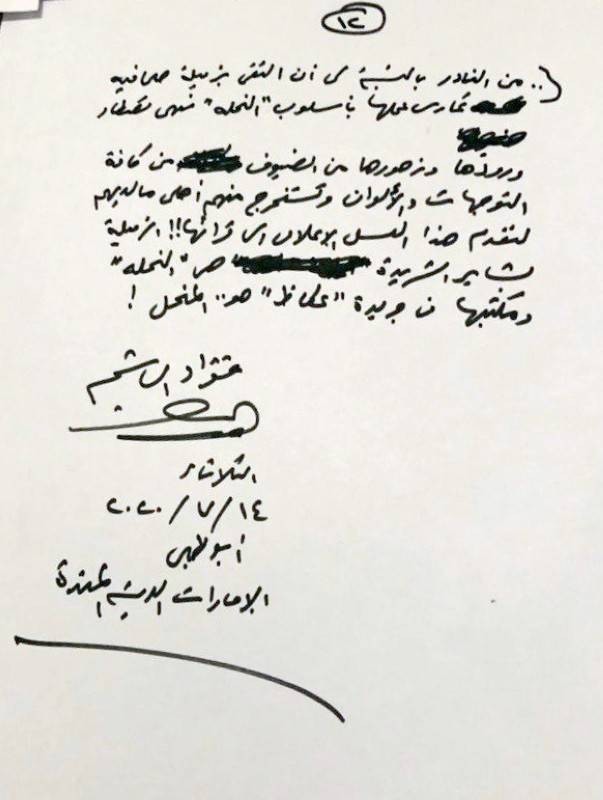 ١٢
(.. من النادر بالنسبة لي أن التقي بزميلة صحافيه
تمارس عملها بأسلوب "النحله" فهي تختار
ورودها وزهورها من الضيوف من كافة
التوجهات والألوان وتستخرج منهم أحلى مالديهم
لتقدم هذا العسل الإعلامي لقرائها!! الزميلة
"النحله" هي
ومكتبها في جريدة "عكاظ" هو.. المنحل !
فؤاد الهاشم
الثلاثاء
١٤ / ٧ / ٢٠٢٠
أبوظبي
الامارات العربية المتحدة